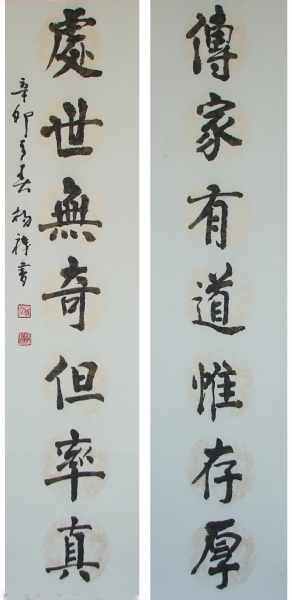 傳家有道惟存厚
處世無奇但率真
辛卯
書